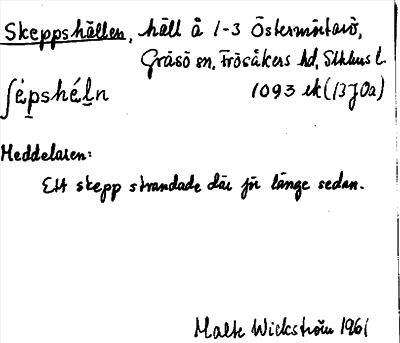 Skeppshällen, häll å 1-3 Östermörtarö,
Gräsö sn, Frösåkers hd, Sthlms l.
ʃépshéln 1093 ek (13J0a)
Meddelaren:
Ett skepp strandade där för länge sedan.
Malte Wickström 1961